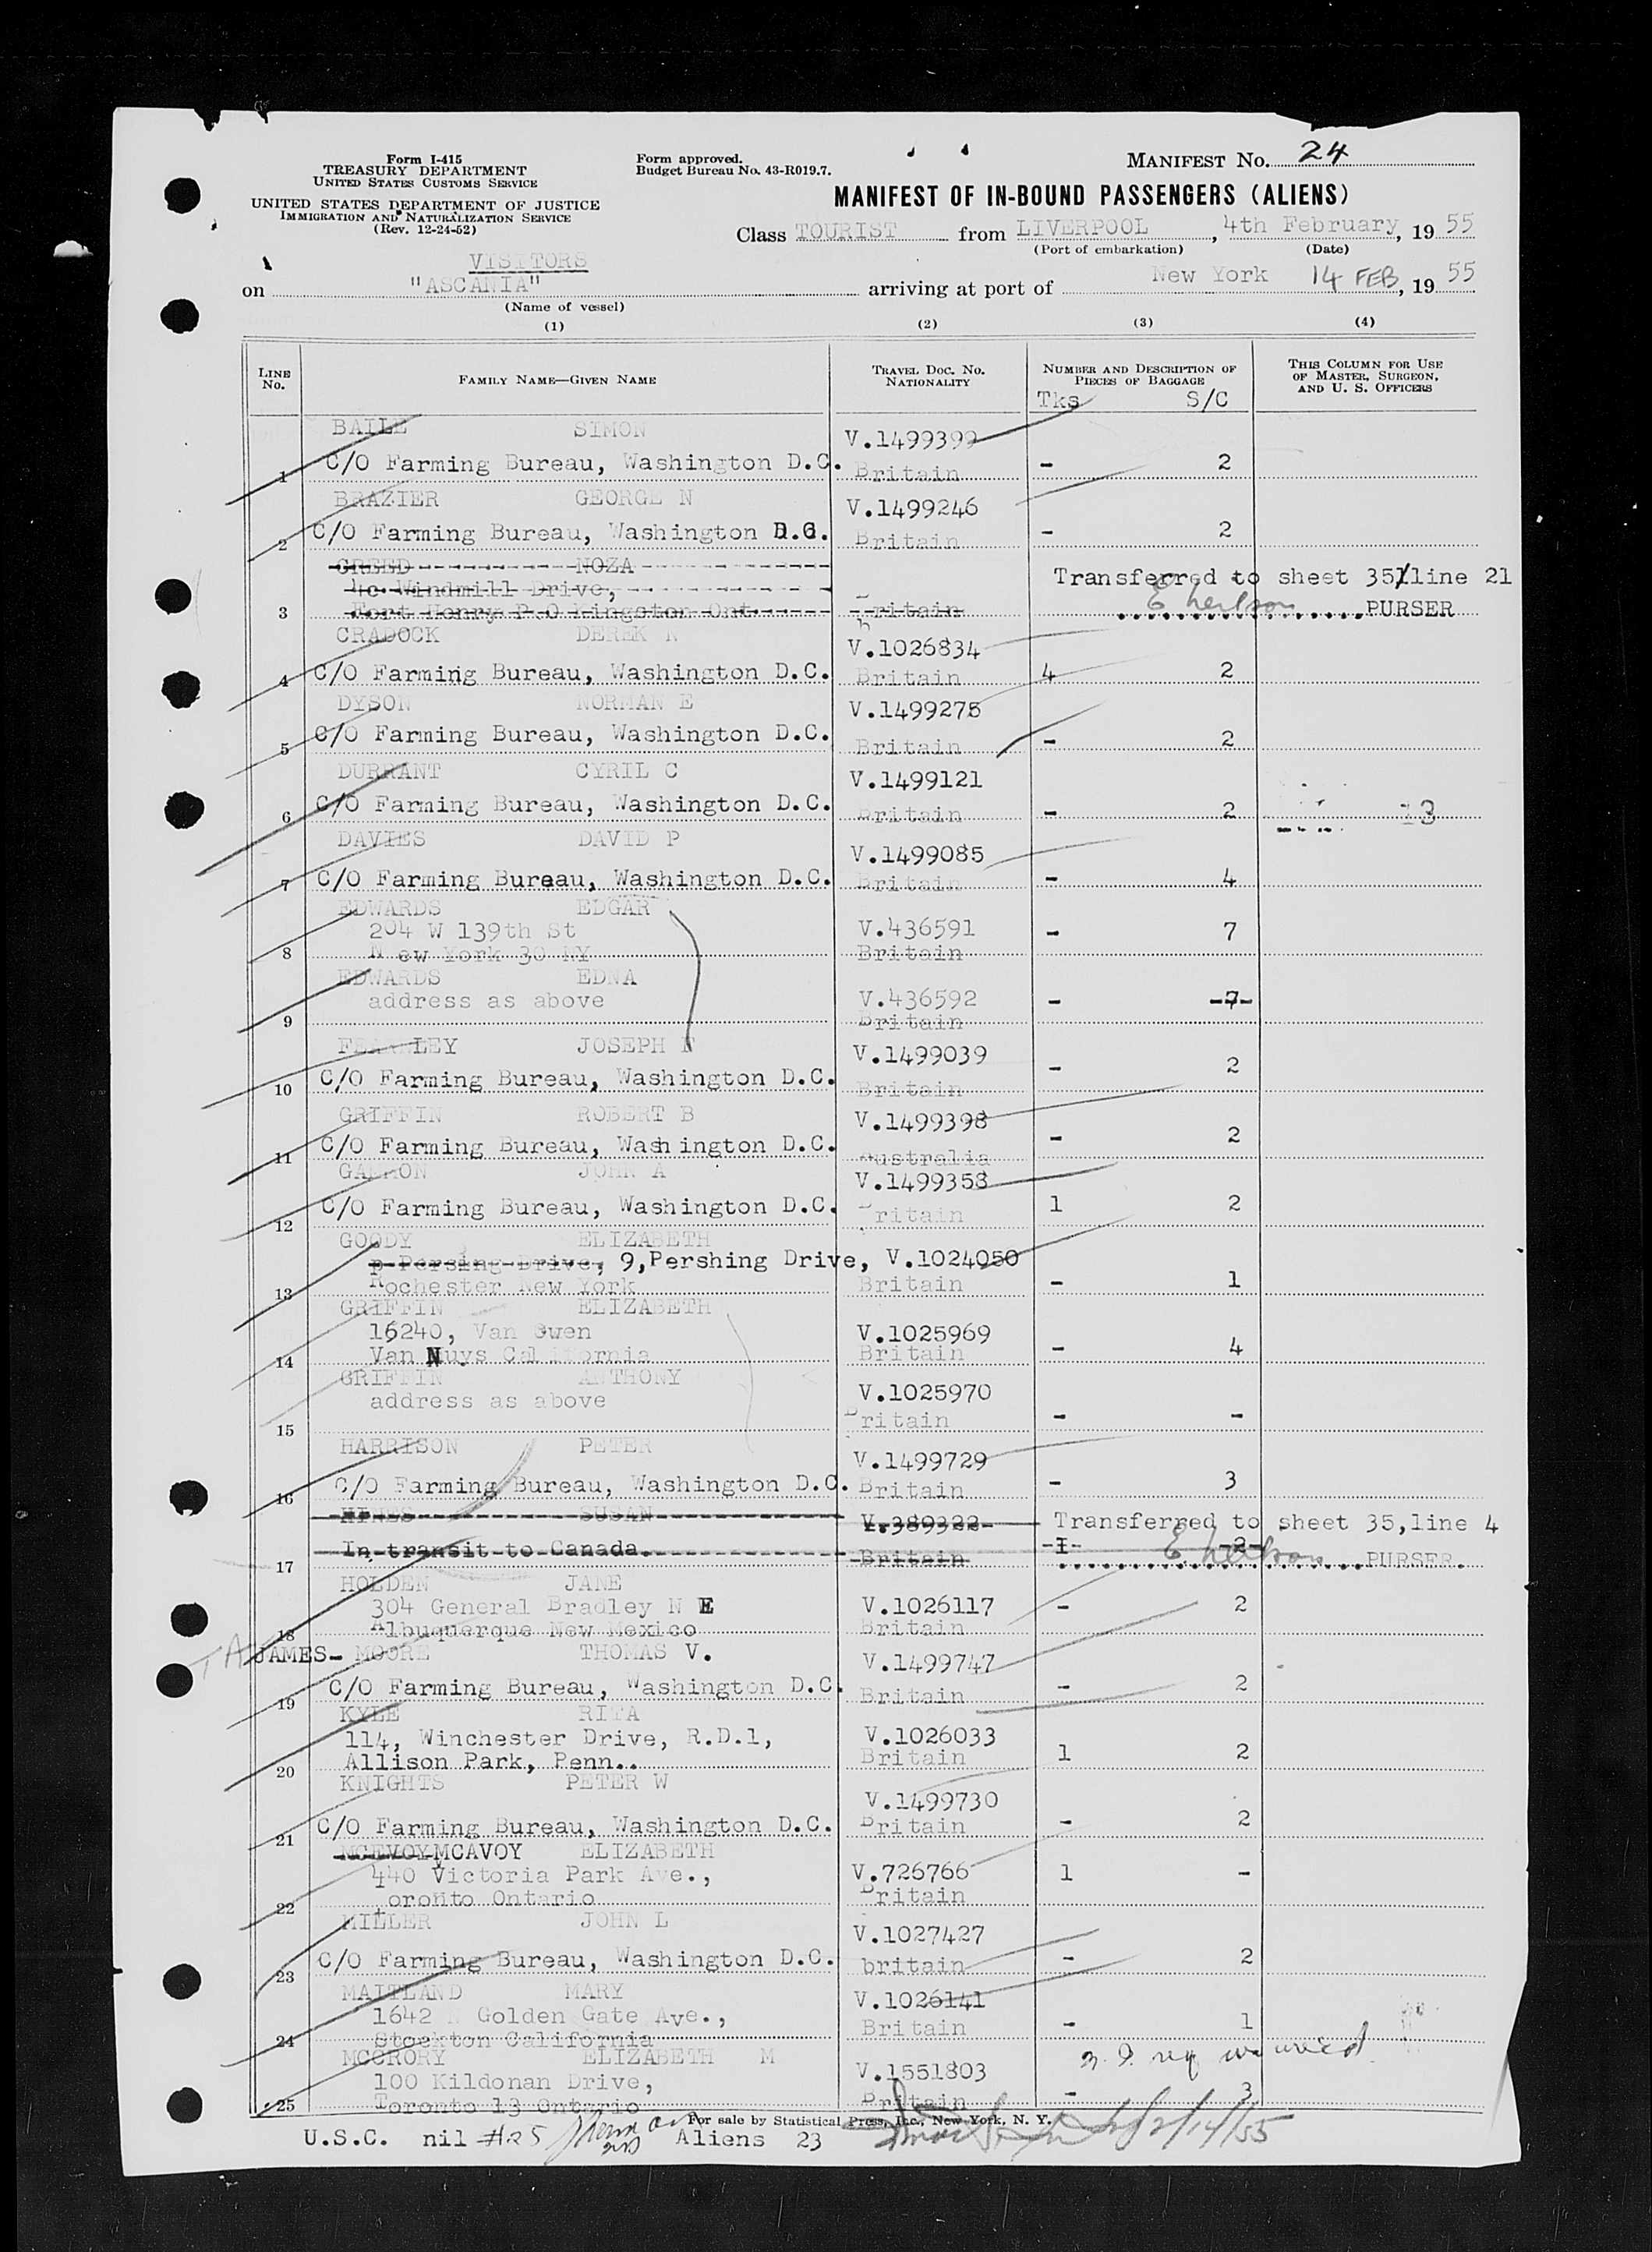 Form I-415
TREASURY DEPARTMENT
UNITED STATES CUSTOMS SERVICE
UNITED STATES DEPARTMENT OF JUSTICE
IMMIGRATION AND NATURALIZATION SERVICE
(Rev. 12-24-52)
Form approved.
Budget Bureau No. 43-R019.7.
MANIFEST No. 24
MANIFEST OF IN-BOUND PASSENGERS (ALIENS)
Class TOURIST from LIVERPOOL, 4th February, 19 55
(Port of embarkation) (Date)
VISITORS
on "ASCANIA" arriving at port of New York 14 FEB, 19 55
(Name of vessel)
(1) (2) (3) (4)
LINE No. FAMILY NAME—GIVEN NAME TRAVEL DOC. No. NATIONALITY NUMBER AND DESCRIPTION OF PIECES OF BAGGAGE THIS COLUMN FOR USE OF MASTER, SURGEON, AND U. S. OFFICERS
Tks S/C
BAILE SIMON V.1499399
1 C/O Farming Bureau, Washington D.C. Britain - 2
BRAZIER GEORGE N V.1499246
2 C/O Farming Bureau, Washington D.C. Britain - 2
CREED NOZA
4c Windmill Drive, Transferred to sheet 35 line 21
3 Fort Henry P.O Kingston Ont Britain PURSER
CRADOCK DEREK N V.1026834
4 C/O Farming Bureau, Washington D.C. Britain 4 2
DYSON NORMAN E V.1499275
5 C/O Farming Bureau, Washington D.C. Britain - 2
DURRANT CYRIL C V.1499121
6 C/O Farming Bureau, Washington D.C. Britain - 2 13
DAVIES DAVID P V.1499085
7 C/O Farming Bureau, Washington D.C. Britain - 4
EDWARDS EDGAR
204 W 139th St V.436591 - 7
8 New York 30 NY Britain
EDWARDS EDNA
address as above V.436592 - -7-
9 Britain
FEARNLEY JOSEPH F V.1499039
10 C/O Farming Bureau, Washington D.C. Britain - 2
GRIFFIN ROBERT B V.1499398
11 C/O Farming Bureau, Washington D.C. Australia - 2
GAMMON JOHN A V.1499358
12 C/O Farming Bureau, Washington D.C. Britain 1 2
GOODY ELIZABETH
p Persing Drive, 9,Pershing Drive, V.1024050
13 Rochester New York Britain - 1
GRIFFIN ELIZABETH
16240, Van Owen V.1025969
14 Van Nuys California Britain - 4
GRIFFIN ANTHONY V.1025970
address as above Britain
15 - -
HARRISON PETER V.1499729
16 C/O Farming Bureau, Washington D.C. Britain - 3
HINES SUSAN V.389322 Transferred to sheet 35,line 4
17 In transit to Canada. Britain -1- -2- PURSER.
HOLDEN JANE
304 General Bradley N E V.1026117 - 2
18 Albuquerque New Mexico Britain
JAMES- MOORE THOMAS V. V.1499747
19 C/O Farming Bureau, Washington D.C. Britain - 2
KYLE RITA
114, Winchester Drive, R.D.1, V.1026033
20 Allison Park, Penn.. Britain 1 2
KNIGHTS PETER W V.1499730
21 C/O Farming Bureau, Washington D.C. Britain - 2
MCEVOY MCAVOY ELIZABETH
440 Victoria Park Ave., V.726766 1 -
22 Toronto Ontario Britain
MILLER JOHN L V.1027427
23 C/O Farming Bureau, Washington D.C. britain - 2
MAITLAND MARY V.1026141
1642 N Golden Gate Ave., Britain
24 Stockton California - 1
MCCRORY ELIZABETH M V.1551803
100 Kildonan Drive,
25 Toronto 13 Ontario Britain - 3
For sale by Statistical Press, Inc., New York, N. Y.
U.S.C. nil #25 Aliens 23 2/14/55